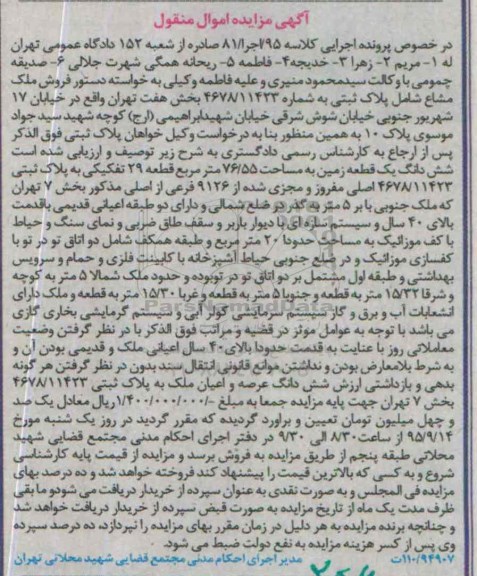 آگهی مزایده اموال منقول
در خصوص پرونده اجرایی کلاسه ۹۵/اجرا/۸۱ صادره از شعبه ۱۵۲ دادگاه عمومی تهران
له ۱- مریم ۲- زهرا ۳- خدیجه۴- فاطمه ۵- ریحانه همگی شهرت جلالی ۶- صدیقه
چمومی با وکالت سیدمحمود منیری و علیه فاطمه وکیلی به خواسته دستور فروش ملک
مشاع شامل پلاک ثبتی به شماره ۴۶۷۸/۱۱۴۲۳ بخش هفت تهران واقع در خیابان ۱۷
شهریور جنوبی خیابان شوش شرقی خیابان شهیدابراهیمی (ارج) کوچه شهید سید جواد
موسوی پلاک ۱۰ به همین منظور بنا به درخواست وکیل خواهان پلاک ثبتی فوق الذکر
پس از ارجاع به کارشناس رسمی دادگستری به شرح زیر توصیف و ارزیابی شده است
شش دانگ یک قطعه زمین به مساحت ۷۶/۵۵ متر مربع قطعه ۲۹ تفکیکی به پلاک ثبتی
۴۶۷۸/۱۱۴۲۳ اصلی مفروز و مجزی شده از ۹۱۲۶ فرعی از اصلی مذکور بخش ۷ تهران
که ملک جنوبی با بر ۵ متر به گذر در ضلع شمالی و دارای دو طبقه اعیانی قدیمی باقدمت
بالای ۴۰ سال و سیستم سازه ای با دیوار باربر و سقف طاق ضربی و نمای سنگ و حیاط
با کف موزائیک به مساحت حدودا ۲۰ متر مربع و طبقه همکف شامل دو اتاق تو در تو با
کفسازی موزائیک و در ضلع جنوبی حیاط آشپزخانه با کابینت فلزی و حمام و سرویس
بهداشتی و طبقه اول مشتمل بر دو اتاق تو در تو بوده و حدود ملک شمالا ۵ متر به کوچه
و شرقا ۱۵/۳۲ متر به قطعه و جنوبا ۵ متر به قطعه و غربا ۱۵/۳۰ متر به قطعه و ملک دارای
انشعابات آب و برق و گاز سیستم سرمایشی کولر آبی و سیستم گرمایشی بخاری گازی
می باشد با توجه به عوامل موثر در قضیه و مراتب فوق الذکر با در نظر گرفتن وضعیت
معاملاتی روز با عنایت به قدمت حدودا بالای ۴۰ سال اعیانی ملک و قدیمی بودن آن و
به شرط بلامعارض بودن و نداشتن موانع قانونی انتقال سند بدون در نظر گرفتن هر گونه
بدهی و بازداشتی ارزش شش دانگ عرصه و اعیان ملک به پلاک ثبتی ۴۶۷۸/۱۱۴۲۳
بخش ۷ تهران جهت پایه مزایده جمعا به مبلغ -/۱/۴۰۰/۰۰۰/۰۰۰ ریال معادل یک صد
و چهل میلیون تومان تعیین و برآورد گردیده که مقرر گردید در روز یک شنبه مورخ
۹۵/۹/۱۴ از ساعت ۸/۳۰ الی ۹/۳۰ در دفتر اجرای احکام مدنی مجتمع قضایی شهید
محلاتی طبقه پنجم از طریق مزایده به فروش برسد و مزایده از قیمت پایه کارشناسی
شروع و به کسی که بالاترین قیمت را پیشنهاد کند فروخته خواهد شد و ده درصد بهای
مزایده فی المجلس و به صورت نقدی به عنوان سپرده از خریدار دریافت می شود و ما بقی
ظرف مدت یک ماه از تاریخ مزایده به صورت قبض سپرده از خریدار دریافت خواهد شد
و چنانچه برنده مزایده به هر دلیل در زمان مقرر بهای مزایده را نپردازد، ده درصد سپرده
وی پس از کسر هزینه مزایده به نفع دولت ضبط می شود.
۱۱۰/۹۴۹۰۷ت مدیر اجرای احکام مدنی مجتمع قضایی شهید محلاتی تهران